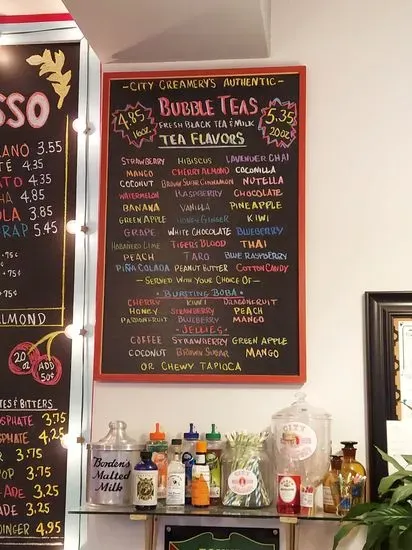 -CITY CREAMERY'S AUTHENTIC-
BUBBLE TEAS
4.85
16oz
5.35
20oz
FRESH BLACK TEA & MILK
TEA FLAVORS
STRAWBERRY HIBISCUS LAVENDER CHAI
MANGO CHERRY ALMOND COCONILLA
COCONUT BROWN SUGAR CINNAMON NUTELLA
WATERMELON RASPBERRY CHOCOLATE
BANANA VANILLA PINEAPPLE
GREEN APPLE HONEY GINGER KIWI
GRAPE WHITE CHOCOLATE BLUEBERRY
HABANERO LIME TIGERS BLOOD THAI
PEACH TARO BLUE RASPBERRY
PIÑA COLADA PEANUT BUTTER COTTON CANDY
-SERVED WITH YOUR CHOICE OF-
BURSTING BOBA
CHERRY KIWI DRAGONFRUIT
HONEY STRAWBERRY PEACH
PASSIONFRUIT BLUEBERRY MANGO
JELLIES
COFFEE STRAWBERRY GREEN APPLE
COCONUT BROWN SUGAR MANGO
OR CHEWY TAPIOCA
SSO
ANO 3.55
TÉ 4.35
ATO 4.35
HA 4.85
OLA 3.85
RAP 5.45
75¢
75¢
ALMOND
20oz
ADD
50¢
TES & BITTERS
PHOSPHATE 3.75
PHATE 4.25
3.75
POP 3.75
ADE 3.25
ADE 3.25
DINGER 4.95
Borden's
Malted
Milk
CITY